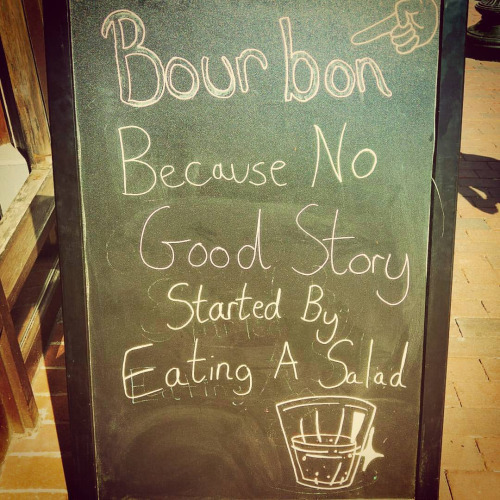 Bourbon
Because No
Good Story
Started By
Eating A Salad